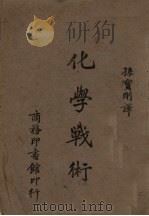 研狗
化學戰術
孫寶剛譯
商務印書館印行